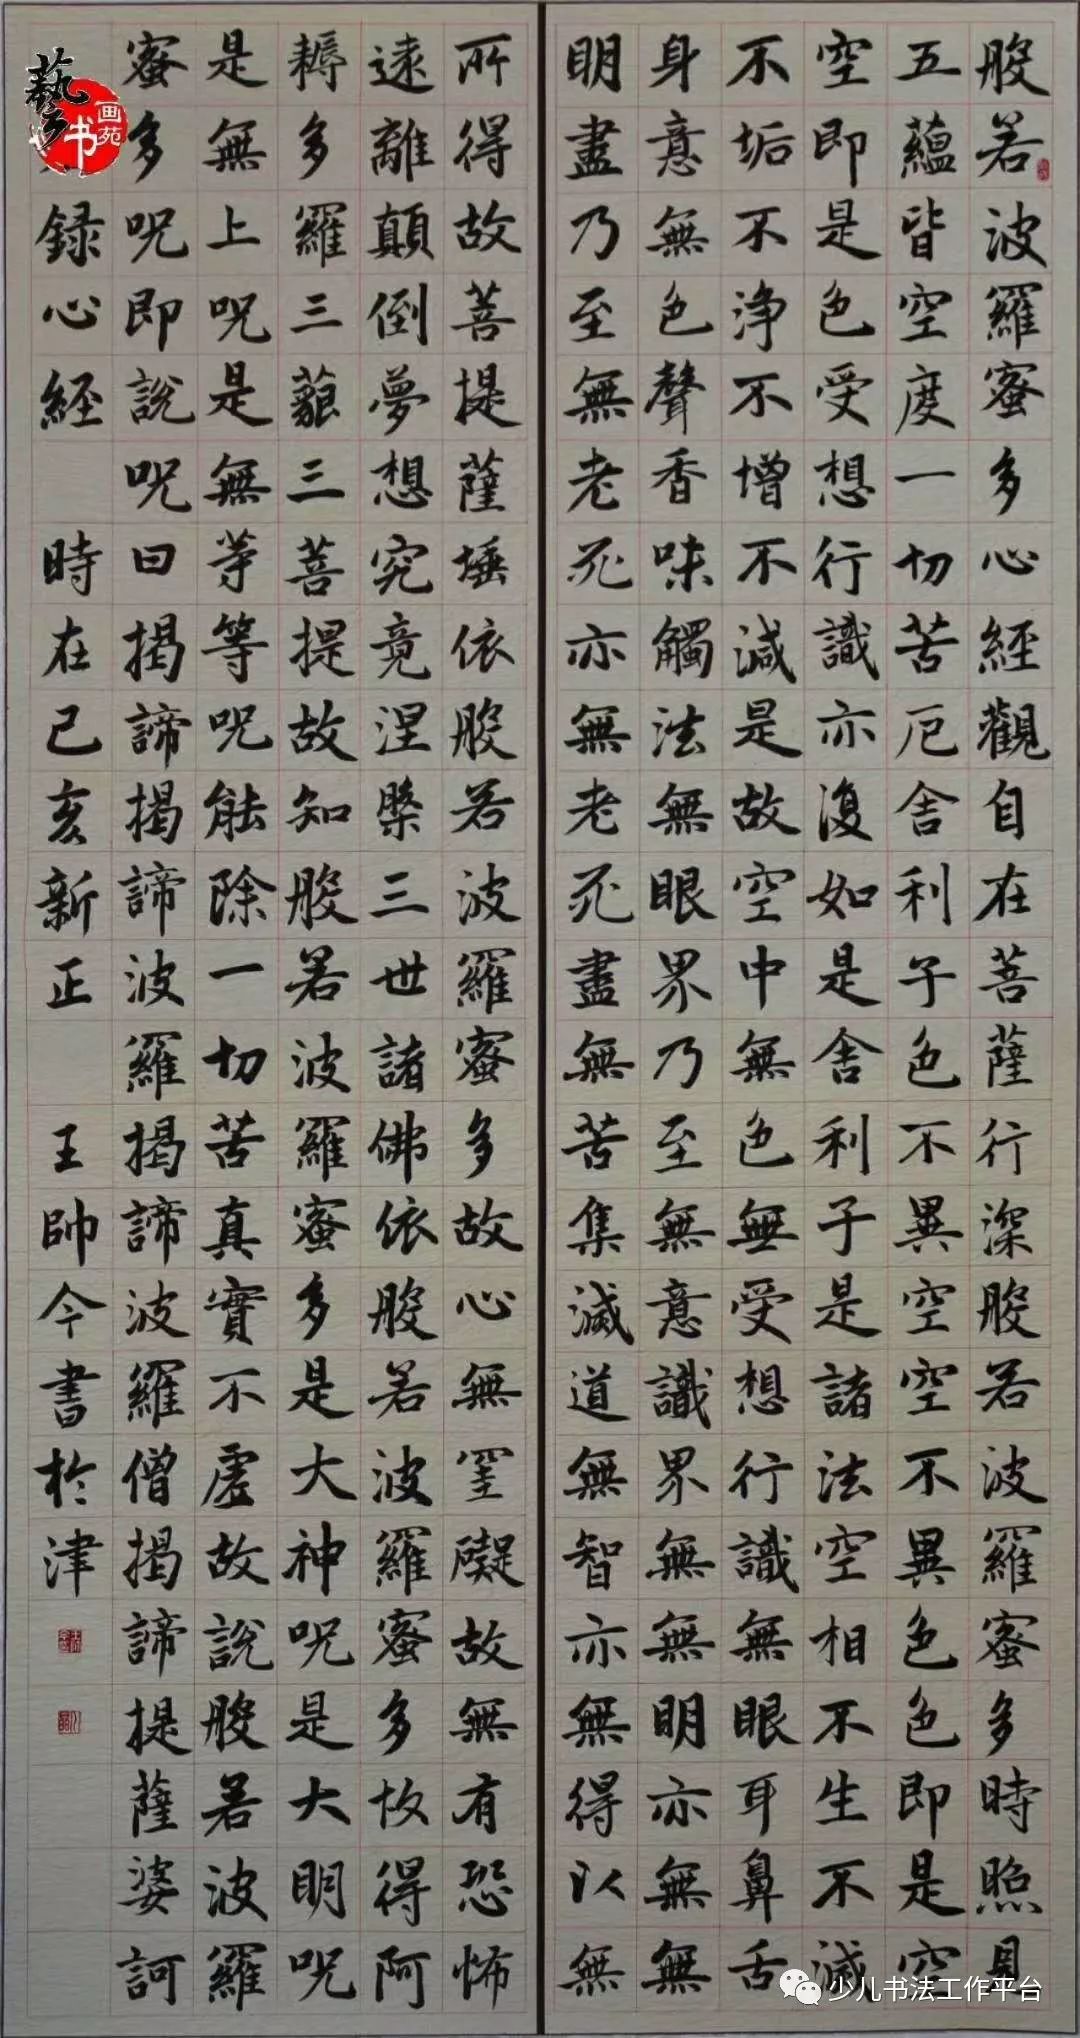 般若波羅蜜多心經觀自在菩薩行深般若波羅蜜多時照見
五蘊皆空度一切苦厄舍利子色不異空空不異色色即是空
空即是色受想行識亦復如是舍利子是諸法空相不生不滅
不垢不浄不增不減是故空中無色無受想行識無眼耳鼻舌
身意無色聲香味觸法無眼界乃至無意識界無無明亦無無
明盡乃至無老死亦無老死盡無苦集滅道無智亦無得以無
所得故菩提薩埵依般若波羅蜜多故心無罣礙故無有恐怖
遠離顛倒夢想究竟涅槃三世諸佛依般若波羅蜜多故得阿
耨多羅三藐三菩提故知般若波羅蜜多是大神呪是大明呪
是無上呪是無等等呪能除一切苦真實不虛故說般若波羅
蜜多呪即說呪曰揭諦揭諦波羅揭諦波羅僧揭諦提薩婆訶
録心經 時在己亥新正 王帥今書於津
藝书画苑
少儿书法工作平台